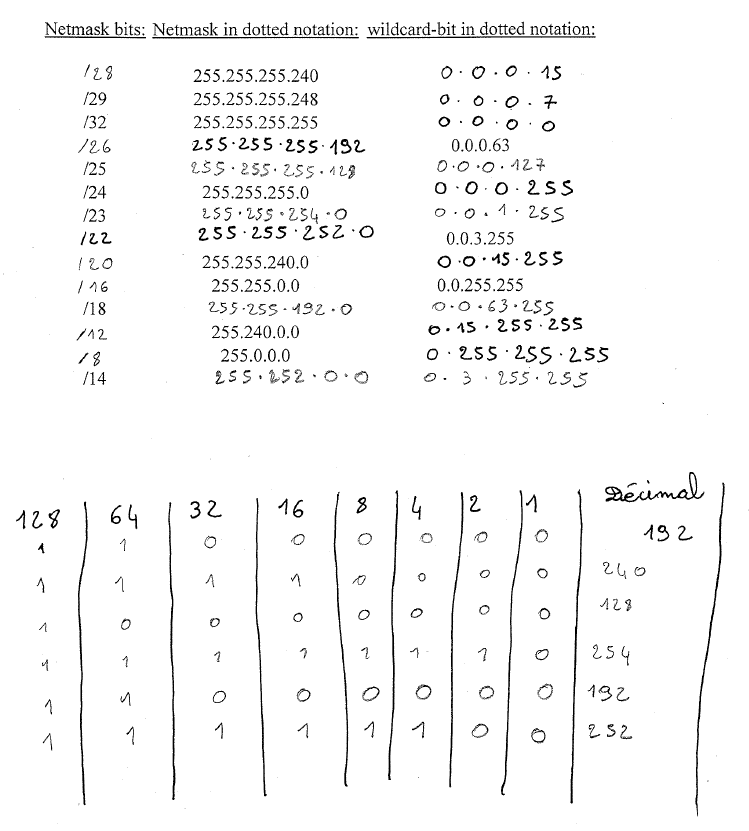 Netmask bits: Netmask in dotted notation: wildcard-bit in dotted notation:
/28 255.255.255.240 0.0.0.15
/29 255.255.255.248 0.0.0.7
/32 255.255.255.255 0.0.0.0
/26 255.255.255.192 0.0.0.63
/25 255.255.255.128 0.0.0.127
/24 255.255.255.0 0.0.0.255
/23 255.255.254.0 0.0.1.255
/22 255.255.252.0 0.0.3.255
/20 255.255.240.0 0.0.15.255
/16 255.255.0.0 0.0.255.255
/18 255.255.192.0 0.0.63.255
/12 255.240.0.0 0.15.255.255
/8 255.0.0.0 0.255.255.255
/14 255.252.0.0 0.3.255.255
128 64 32 16 8 4 2 1 Décimal
1 1 0 0 0 0 0 0 192
1 1 1 1 0 0 0 0 240
1 0 0 0 0 0 0 0 128
1 1 1 1 1 1 1 0 254
1 1 0 0 0 0 0 0 192
1 1 1 1 1 1 0 0 252